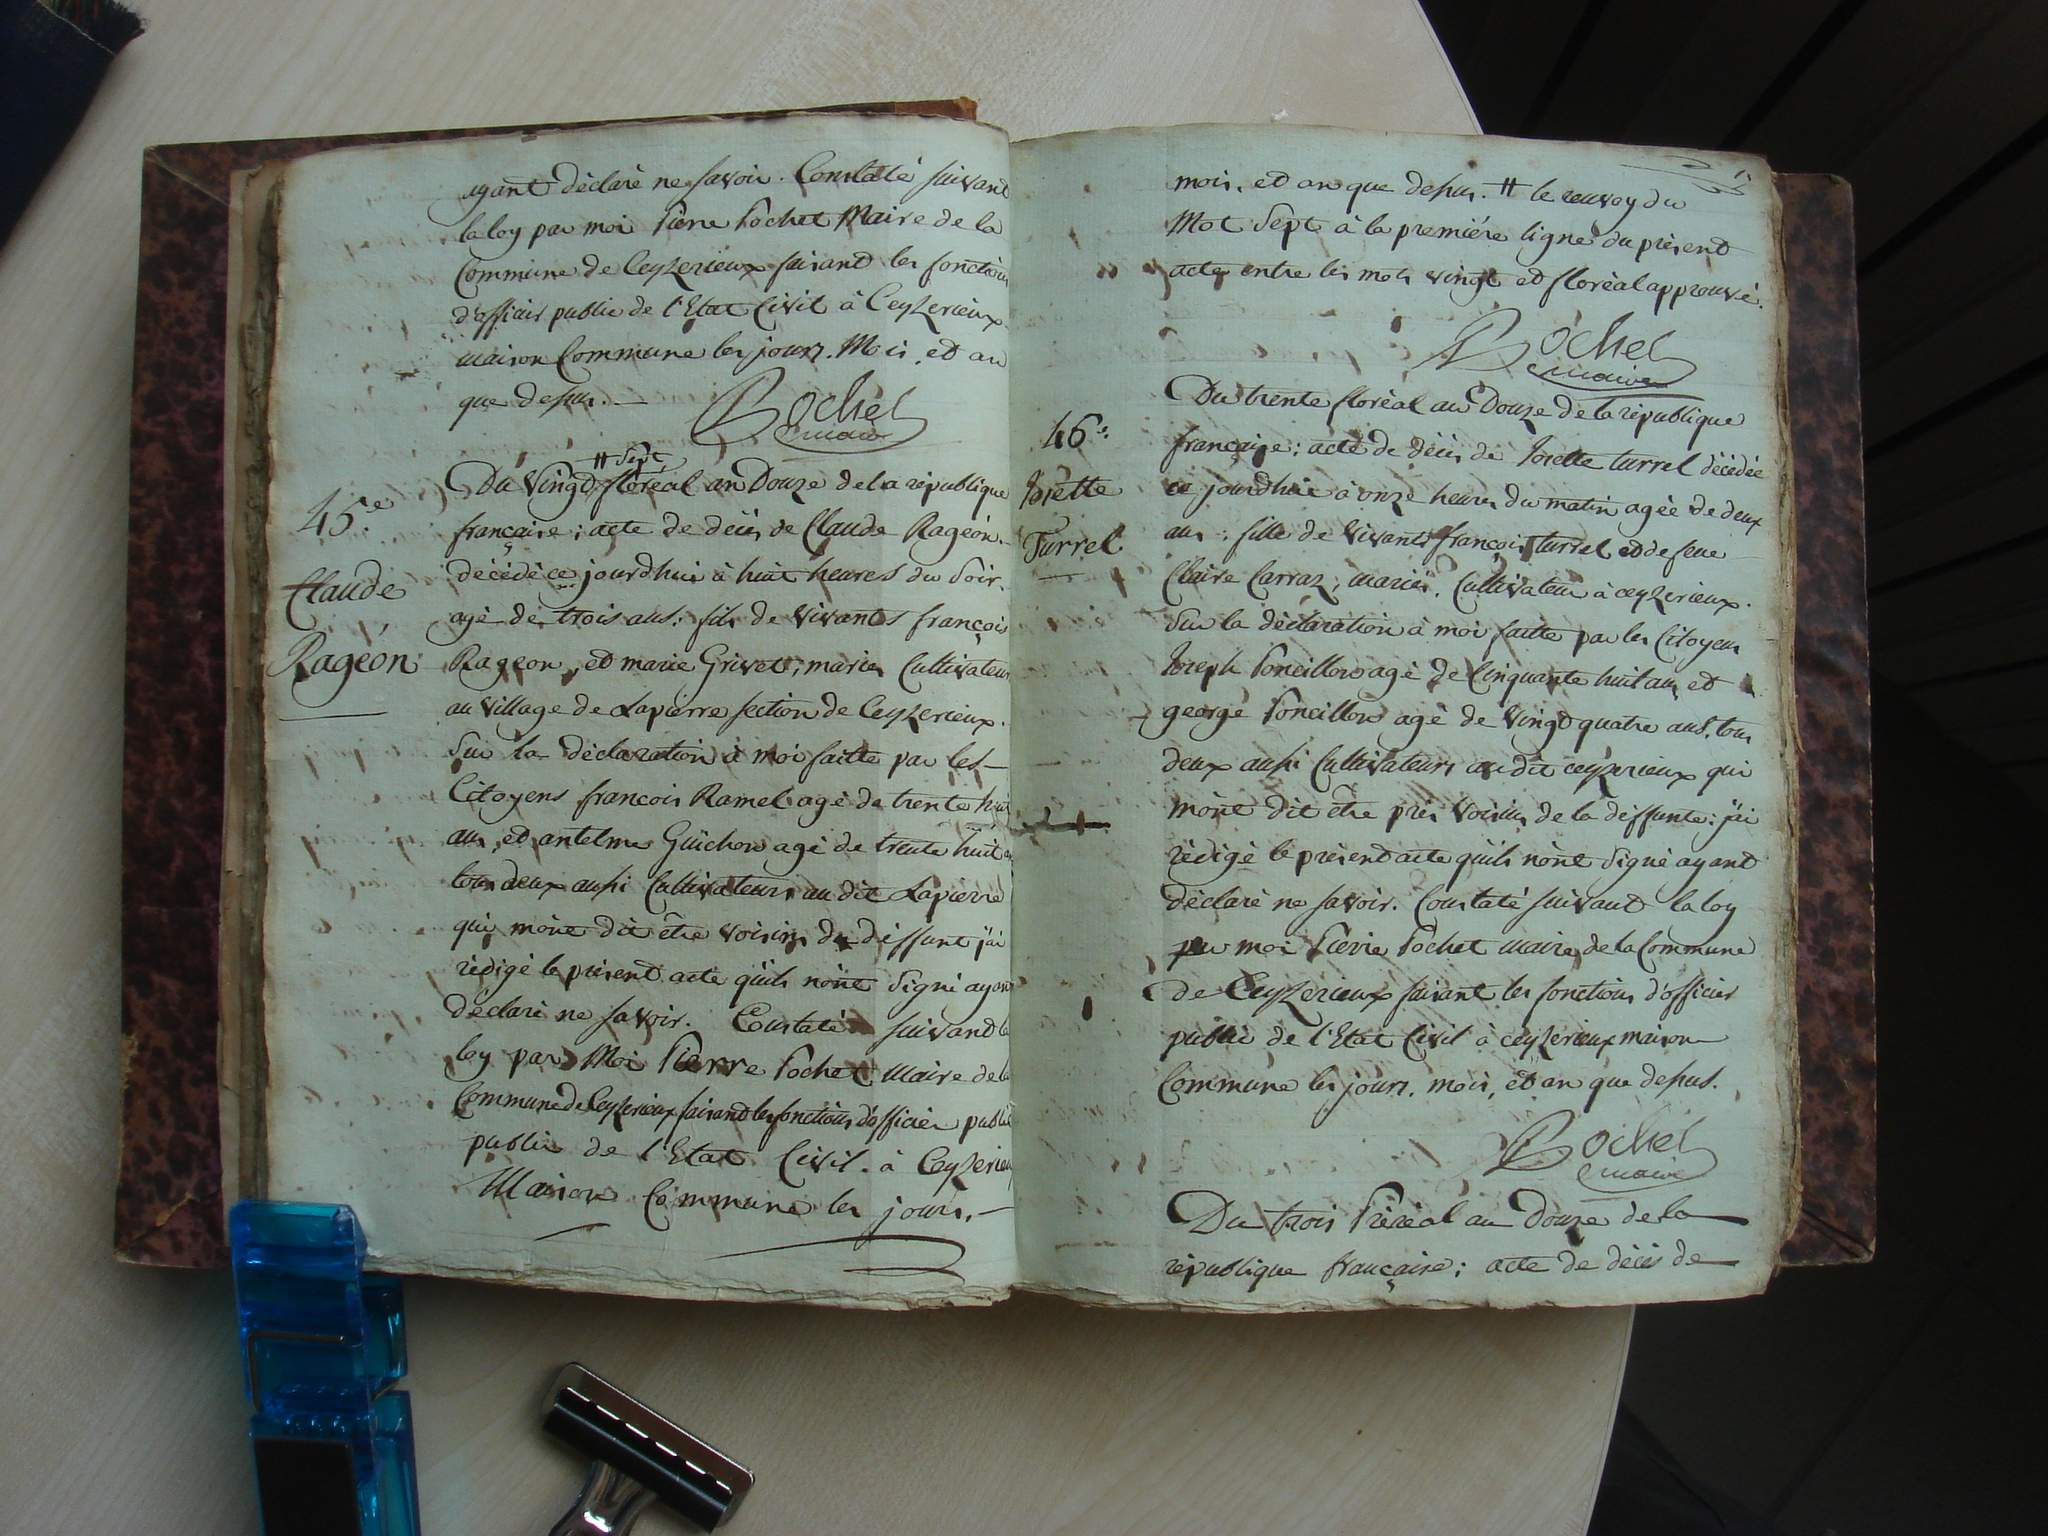 ayant déclaré ne savoir. Constaté suivant
la loy par moi Pierre Pochet Maire de la
Commune de Ceyzerieux faisant les fonctions
d'officier public de l'Etat Civil à Ceyzerieux
maison Commune les jours. Mois, et an
que dessus. —
Pochet
maire
# Sept
45e.
Claude
Rageón
Du Vingt floréal an Douze de la république
française; acte de décés de Claude Rageón.
décédé ce jourdhui à huit heures du Soir.
agé de trois ans: fils de vivants françois
Rageon, et marie Grivet, mariés Cultivateurs
au village de Lapierre section de Ceyzerieux.
Sur la déclaration à moi faitte par les
Citoyens francois Ramel agé de trente huit
ans, et antelme Guichon agé de trente huit
tous deux aussi Cultivateurs au dit Lapierre
qui m'ont dit être voisins du deffunt j'ai
rédigé le présent acte qu'ils n'ont Signé ayant
déclaré ne savoir. Constaté suivant la
loy par Moi Pierre Pochet Maire de la
Commune de Ceyzerieux faisant les fonctions d'officier public
public de l'Etat Civil. à Ceyzerieux
Maison Commune les jours. —
mois, et an que dessus. # le renvoy du
Mot Sept à la premiére ligne du présent
acte entre les mots vingt et floréal approuvé.
Pochet
maire
46e.
Josette
Turrel
Du trente floréal an Douze de la république
française; acte de décés de Josette turrel décédée
ce jourdhui à onze heures du matin agée de deux
ans: fille de vivant françois turrel et de feue
Claire Carraz, mariés, Cultivateur à ceyzerieux.
Sur la déclaration à moi faitte par les Citoyens
Joseph Poncillon agé de Cinquante huit ans et
george Poncillon agé de vingt quatre ans, tous
deux aussi Cultivateurs audit ceyzerieux qui
m'ont dit être près voisins de la deffunte: j'ai
rédigé le présent acte qu'ils n'ont Signé ayant
déclaré ne savoir. Constaté suivant la loy
par moi Pierre Pochet maire de la Commune
de Ceyzerieux faisant les fonctions d'officier
public de l'Etat Civil à ceyzerieux maison
Commune les jours. mois, et an que dessus.
Pochet
maire
Du trois Préréal an Douze de la
république française; acte de décés de